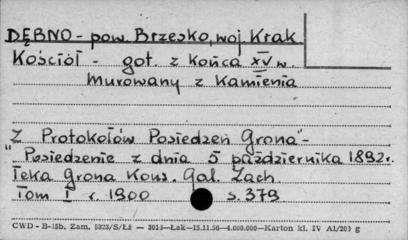 DĘBNO - pow. Brzesko, woj Krak
Kościół - got. z końca XV w.
murowany z kamienia
"Z Protokołów Posiedzeń Grona" -
Posiedzenie z dnia 5 października 1892r.
Teka Grona Kons. Gal. Zach.
Tom I r. 1900 s. 379
CWD - B-15b. Zam. 5323/S/Łż — 3014—Łak—15.11.56—4.000.000—Karton kl. IV A1/200 g